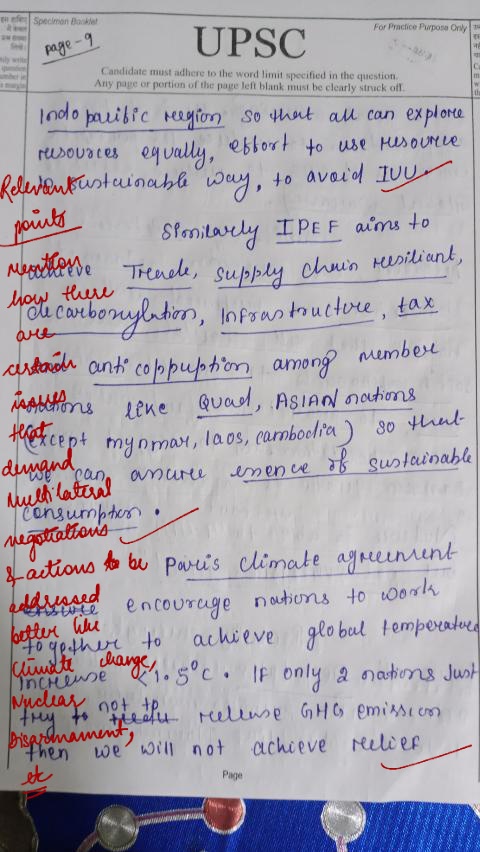 Specimen Booklet
For Practice Purpose Only
page-9
UPSC
Candidate must adhere to the word limit specified in the question.
Any page or portion of the page left blank must be clearly struck off.
Indo pacific region so that all can explore
resources equally, effort to use resource
in sustainable way, to avoid IUU.
Similarly IPEF aims to
achieve Trade, Supply chain resiliant,
decarbonylation, Infrastructure, tax
and anti coppuption among member
nations like Quad, ASIAN nations
(except mynmar, laos, cambodia) so that
we can assure essence of sustainable
consumption.
Paris climate agreement
ensure encourage nations to work
together to achieve global temperature
increase <1.5°C. If only 2 nations just
try to not to release GHG emission
then we will not achieve relief
Relevant
points
mention
how there
are
certain
issues
that
demand
Multilateral
negotiations
& actions to be
addressed
better like
Climate change,
Nuclear
Disarmament,
etc
Page